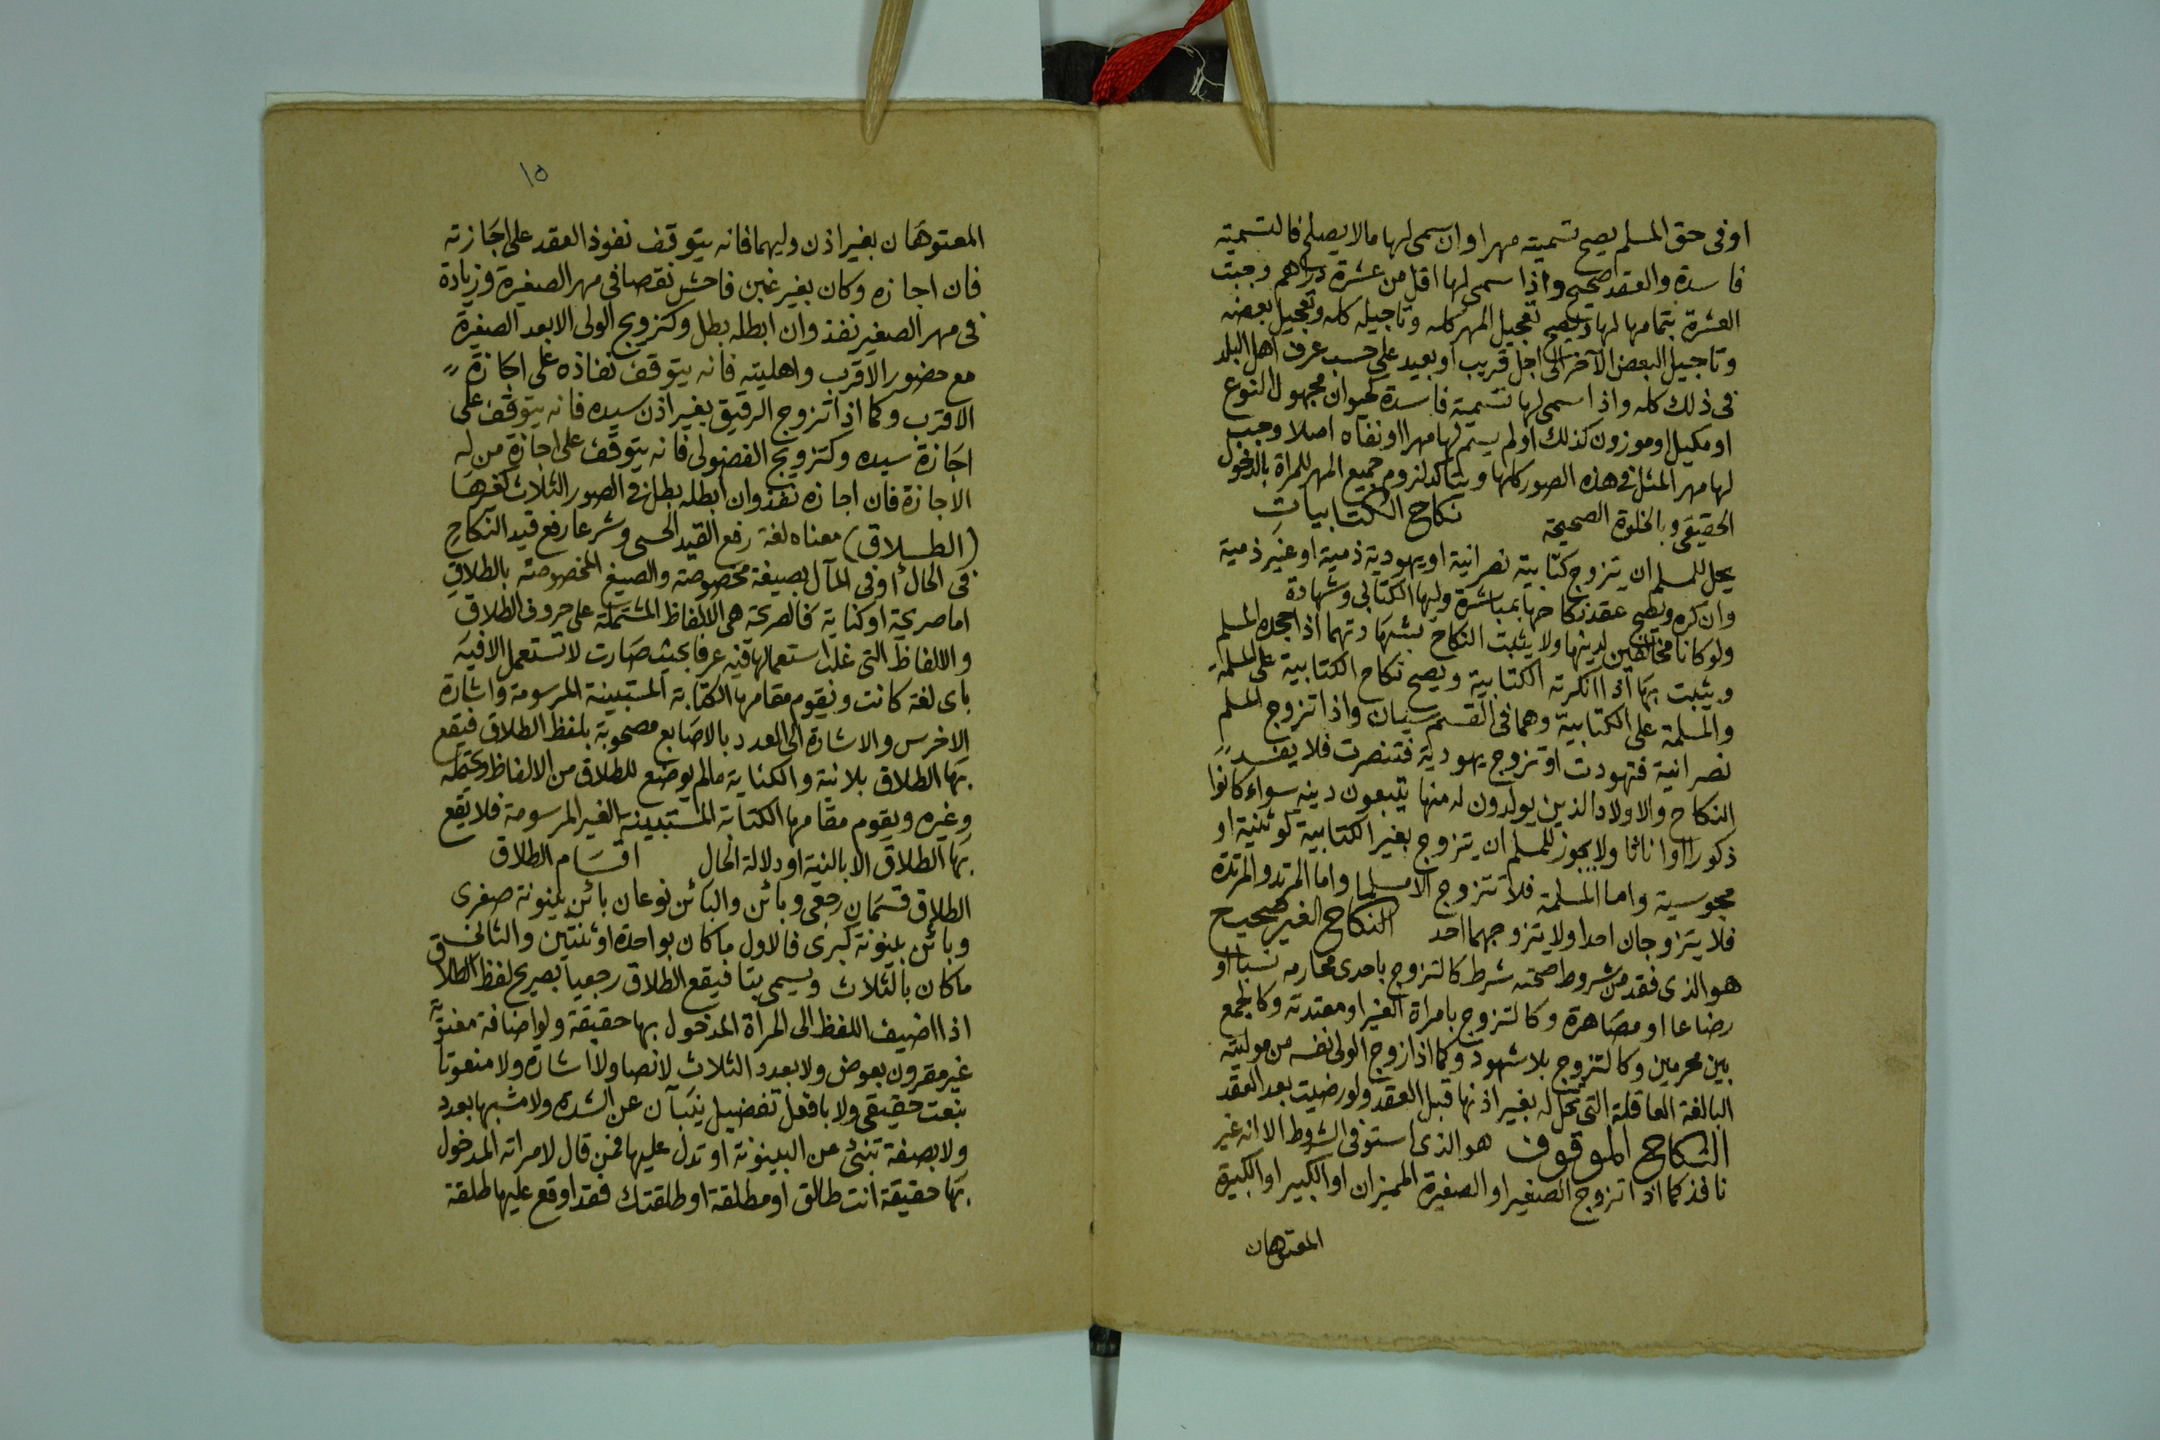 او فى حق المسلم يصح تسميته مهرا وان سمى لها مالا يصلح فالتسمية
فاسدة والعقد صحيح واذا سمى لها اقل من عشرة دراهم وجبت
العشرة بتمامها لها ويصح تعجيل المهر كله وتاجيله كله وتعجيل بعضه
وتاجيل البعض الآخر الى اجل قريب او بعيد على حسب عرف اهل البلد
فى ذلك كله واذا سمى لها تسمية فاسدة كحيوان مجهول النوع
او مكيل او موزون كذلك او لم يسم لها مهرا او نفاه اصلا وجب
لها مهر المثل فى هذه الصور كلها ويتاكد لزوم جميع المهر للمراة بالدخول
الحقيقى وبالخلوة الصحيحة نكاح الكتابيات
يحل للمسلم ان يتزوج كتابية نصرانية او يهودية ذمية او غير ذمية
وان كره ويصح عقد نكاحها بمباشرة وليها الكتابى وشهادة
ولو كانا مخالفين لدينها ولا يثبت النكاح بشهادتهما اذا جحده المسلم
ويثبت بها اذا انكرته الكتابية ويصح نكاح الكتابية على المسلمة
والمسلمة على الكتابية وهما فى القسم سيان واذا تزوج المسلم
نصرانية فتهودت او تزوج يهودية فتنصرت فلا يفسد
النكاح والاولاد الذين يولدون له منها يتبعون دينه سواء كانوا
ذكورا او اناثا ولا يجوز للمسلم ان يتزوج بغير الكتابية كوثنية او
مجوسية واما المسلمة فلا تتزوج الا مسلما واما المرتد والمرتدة
فلا يتزوجان احدا ولا يتزوجهما احد النكاح الغير صحيح
هو الذى فقد من شروط صحته شرط كالتزوج باحدى محارمه نسبا او
رضاعا او مصاهرة وكالتزوج بامراة الغير او معتدته وكالجمع
بين محرمين وكالتزوج بلا شهود وكما اذا زوج الولى نفسه من موليته
البالغة العاقلة التى تحل له بغير اذنها قبل العقد ولو رضيت بعد العقد
النكاح الموقوف هو الذى استوفى الشروط الا انه غير
نافذ كما اذا تزوج الصغير او الصغيرة المميزان او الكبير او الكبيرة
المعتوهان
١٥
المعتوهان بغير اذن وليهما فانه يتوقف نفوذ العقد على اجازته
فان اجازه وكان بغير غبن فاحش نقصا فى مهر الصغيرة وزيادة
فى مهر الصغير نفذ وان ابطله بطل وكتزويج الولى الابعد الصغيرة
مع حضور الاقرب واهليته فانه يتوقف نفاذه على اجازة
الاقرب وكما اذا تزوج الرقيق بغير اذن سيده فانه يتوقف على
اجازة سيده وكتزويج الفضولى فانه يتوقف على اجازة من له
الاجازة فان اجازه نفذ وان ابطله بطل فى الصور الثلاث كغيرها
(الطلاق) معناه لغة رفع القيد الحسى وشرعا رفع قيد النكاح
فى الحال او فى المآل بصيغة مخصوصة والصيغ المخصوصة بالطلاق
اما صريحة او كناية فالصريحة هى الالفاظ المشتملة على حروف الطلاق
والالفاظ التى غلب استعمالها فيه عرفا بحيث صارت لا تستعمل الا فيه
باى لغة كانت ويقوم مقامها الكتابة المستبينة المرسومة واشارة
الاخرس والاشارة الى العدد بالاصابع مصحوبة بلفظ الطلاق فيقع
بها الطلاق بلا نية والكناية مالم يوضع للطلاق من الالفاظ ويحتمله
وغيره ويقوم مقامها الكتابة المستبينة الغير المرسومة فلا يقع
بها الطلاق الا بالنية او دلالة الحال اقسام الطلاق
الطلاق قسمان رجعى وبائن والبائن نوعان بائن بينونة صغرى
وبائن بينونة كبرى فالاول ما كان بواحدة او ثنتين والثانى
ما كان بالثلاث ويسمى بتا فيقع الطلاق رجعيا بصريح لفظ الطلاق
اذا اضيف اللفظ الى المرآة المدخول بها حقيقة ولو اضافة معنوية
غير مقرون بعوض ولا بعدد الثلاث لا نصا ولا اشارة ولا منعوتا
بنعت حقيقى ولا بافعل تفضيل ينبآن عن الشدة ولا مشبها بعدد
ولا بصفة تنبئ عن البينونة او تدل عليها فمن قال لامراته المدخول
بها حقيقة انت طالق او مطلقة او طلقتك فقد اوقع عليها طلقة